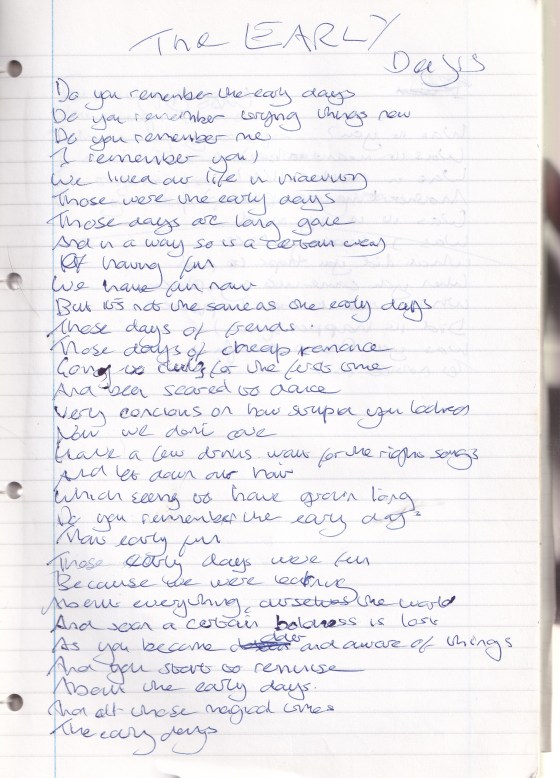 The EARLY
Days
Do you remember the early days
Do you remember trying things new
Do you remember me
I remember you,
We lived our life in
Those were the early days
Those days are long gone
And in a way so is a certain way
Of having fun
We have fun now
But it's not the same as the early days
Those days of friends.
Those days of cheap romance
Going to clubs for the first time
And been scared to dance
Very concious on how stupid you looked
Now we dont care
Have a few drinks wait for the right songs
And let down our hair
Which seems to have grown long
Do you remember the early days
early fun
Those early days were fun
Because we were learning
About everything, ourselves the world
And soon a certain boldness is lost
As you become and aware of things
And you start to reminise
About the early days.
those magical times
The early days